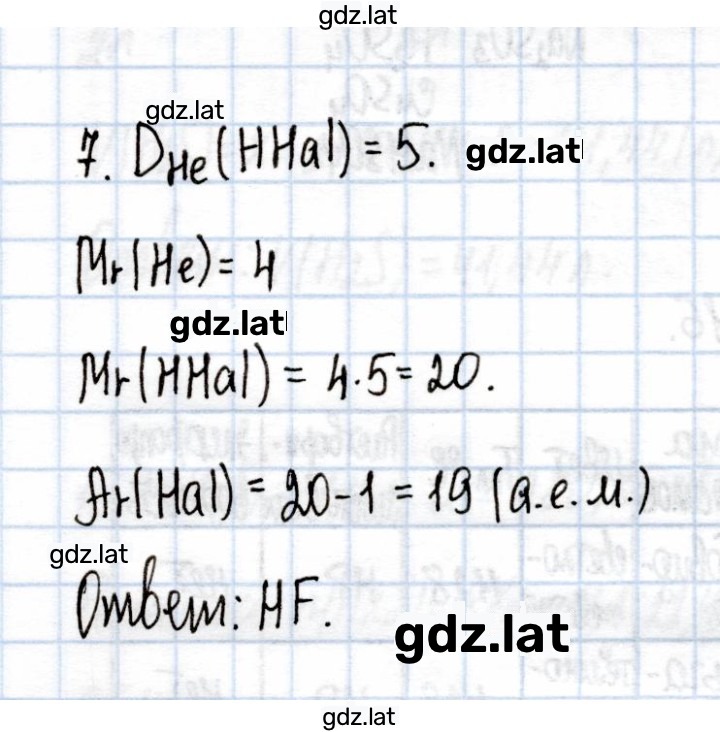 gdz.lat
gdz.lat
7. D_He(HHal) = 5. gdz.lat
Mr(He) = 4
gdz.lat
Mr(HHal) = 4·5 = 20.
Ar(Hal) = 20 - 1 = 19 (а.е.м.)
gdz.lat
Ответ: HF.
gdz.lat
gdz.lat